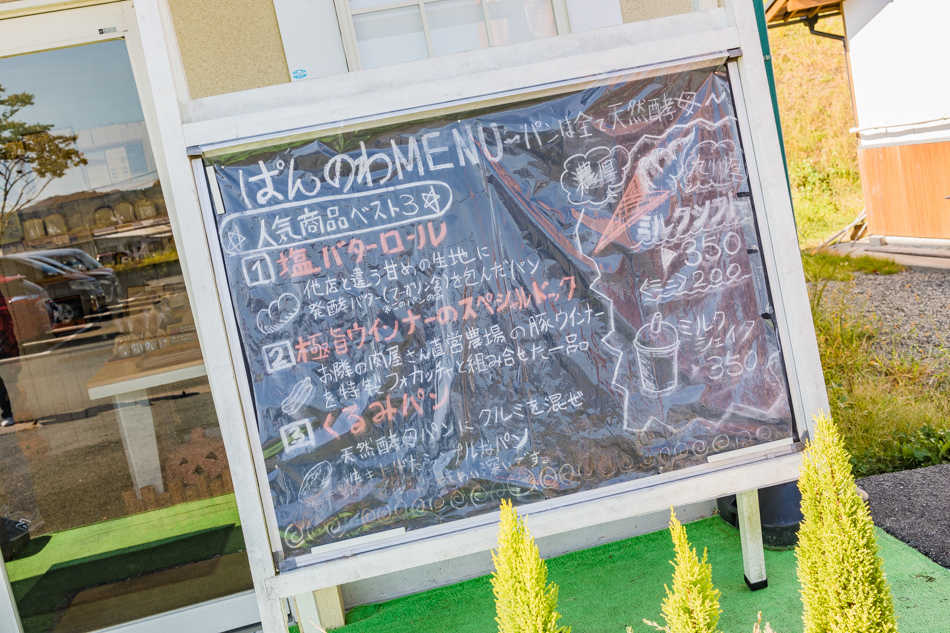 ぱんのわMENU ～パンは全て天然酵母～
人気商品ベスト3
1 塩バターロール
他店と違う甘めの生地に
発酵バター(マーガリン含)を包んだパン
2 極旨ウインナーのスペシャルドック
お隣の肉屋さん直営農場の豚ウインナー
を特生フォカッチャと組み合せた一品
3 くるみパン
天然酵母パンに クルミを混ぜ
焼き上げた
なパン
です。
濃厚
ミルクソフト
350
200
ミルク
シェイク
350